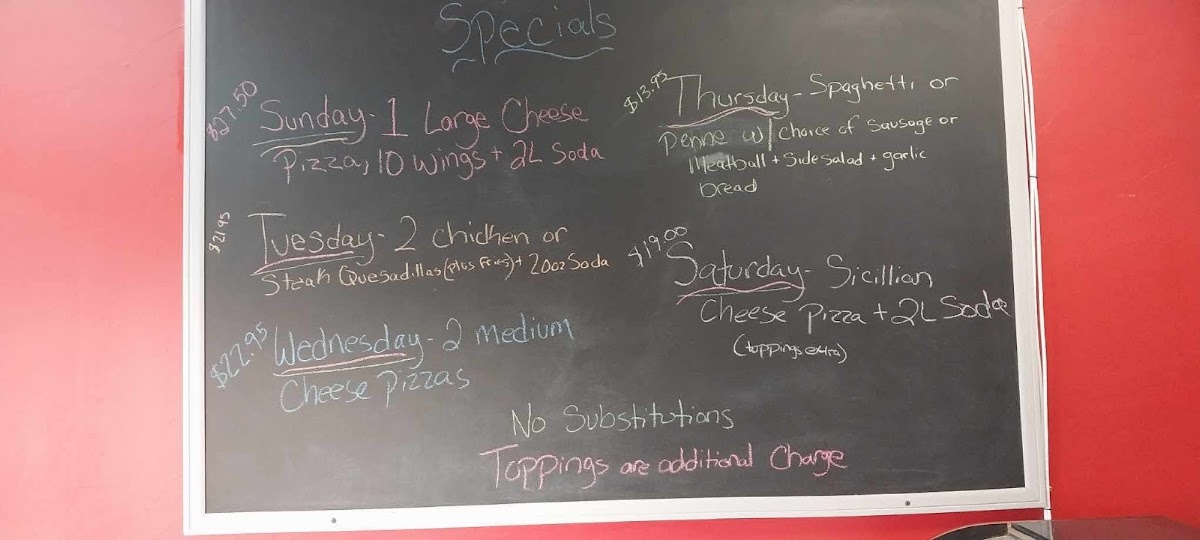 Specials
$27.50 Sunday - 1 Large Cheese
Pizza, 10 wings + 2L Soda
$21.95 Tuesday - 2 chicken or
Steak Quesadillas (plus fries) + 20oz Soda
$22.95 Wednesday - 2 medium
Cheese Pizzas
$13.95 Thursday - Spaghetti or
Penne w/ choice of sausage or
Meatball + side salad + garlic
bread
$19.00 Saturday - Sicillian
Cheese Pizza + 2L Soda
(toppings extra)
No Substitutions
Toppings are additional Charge